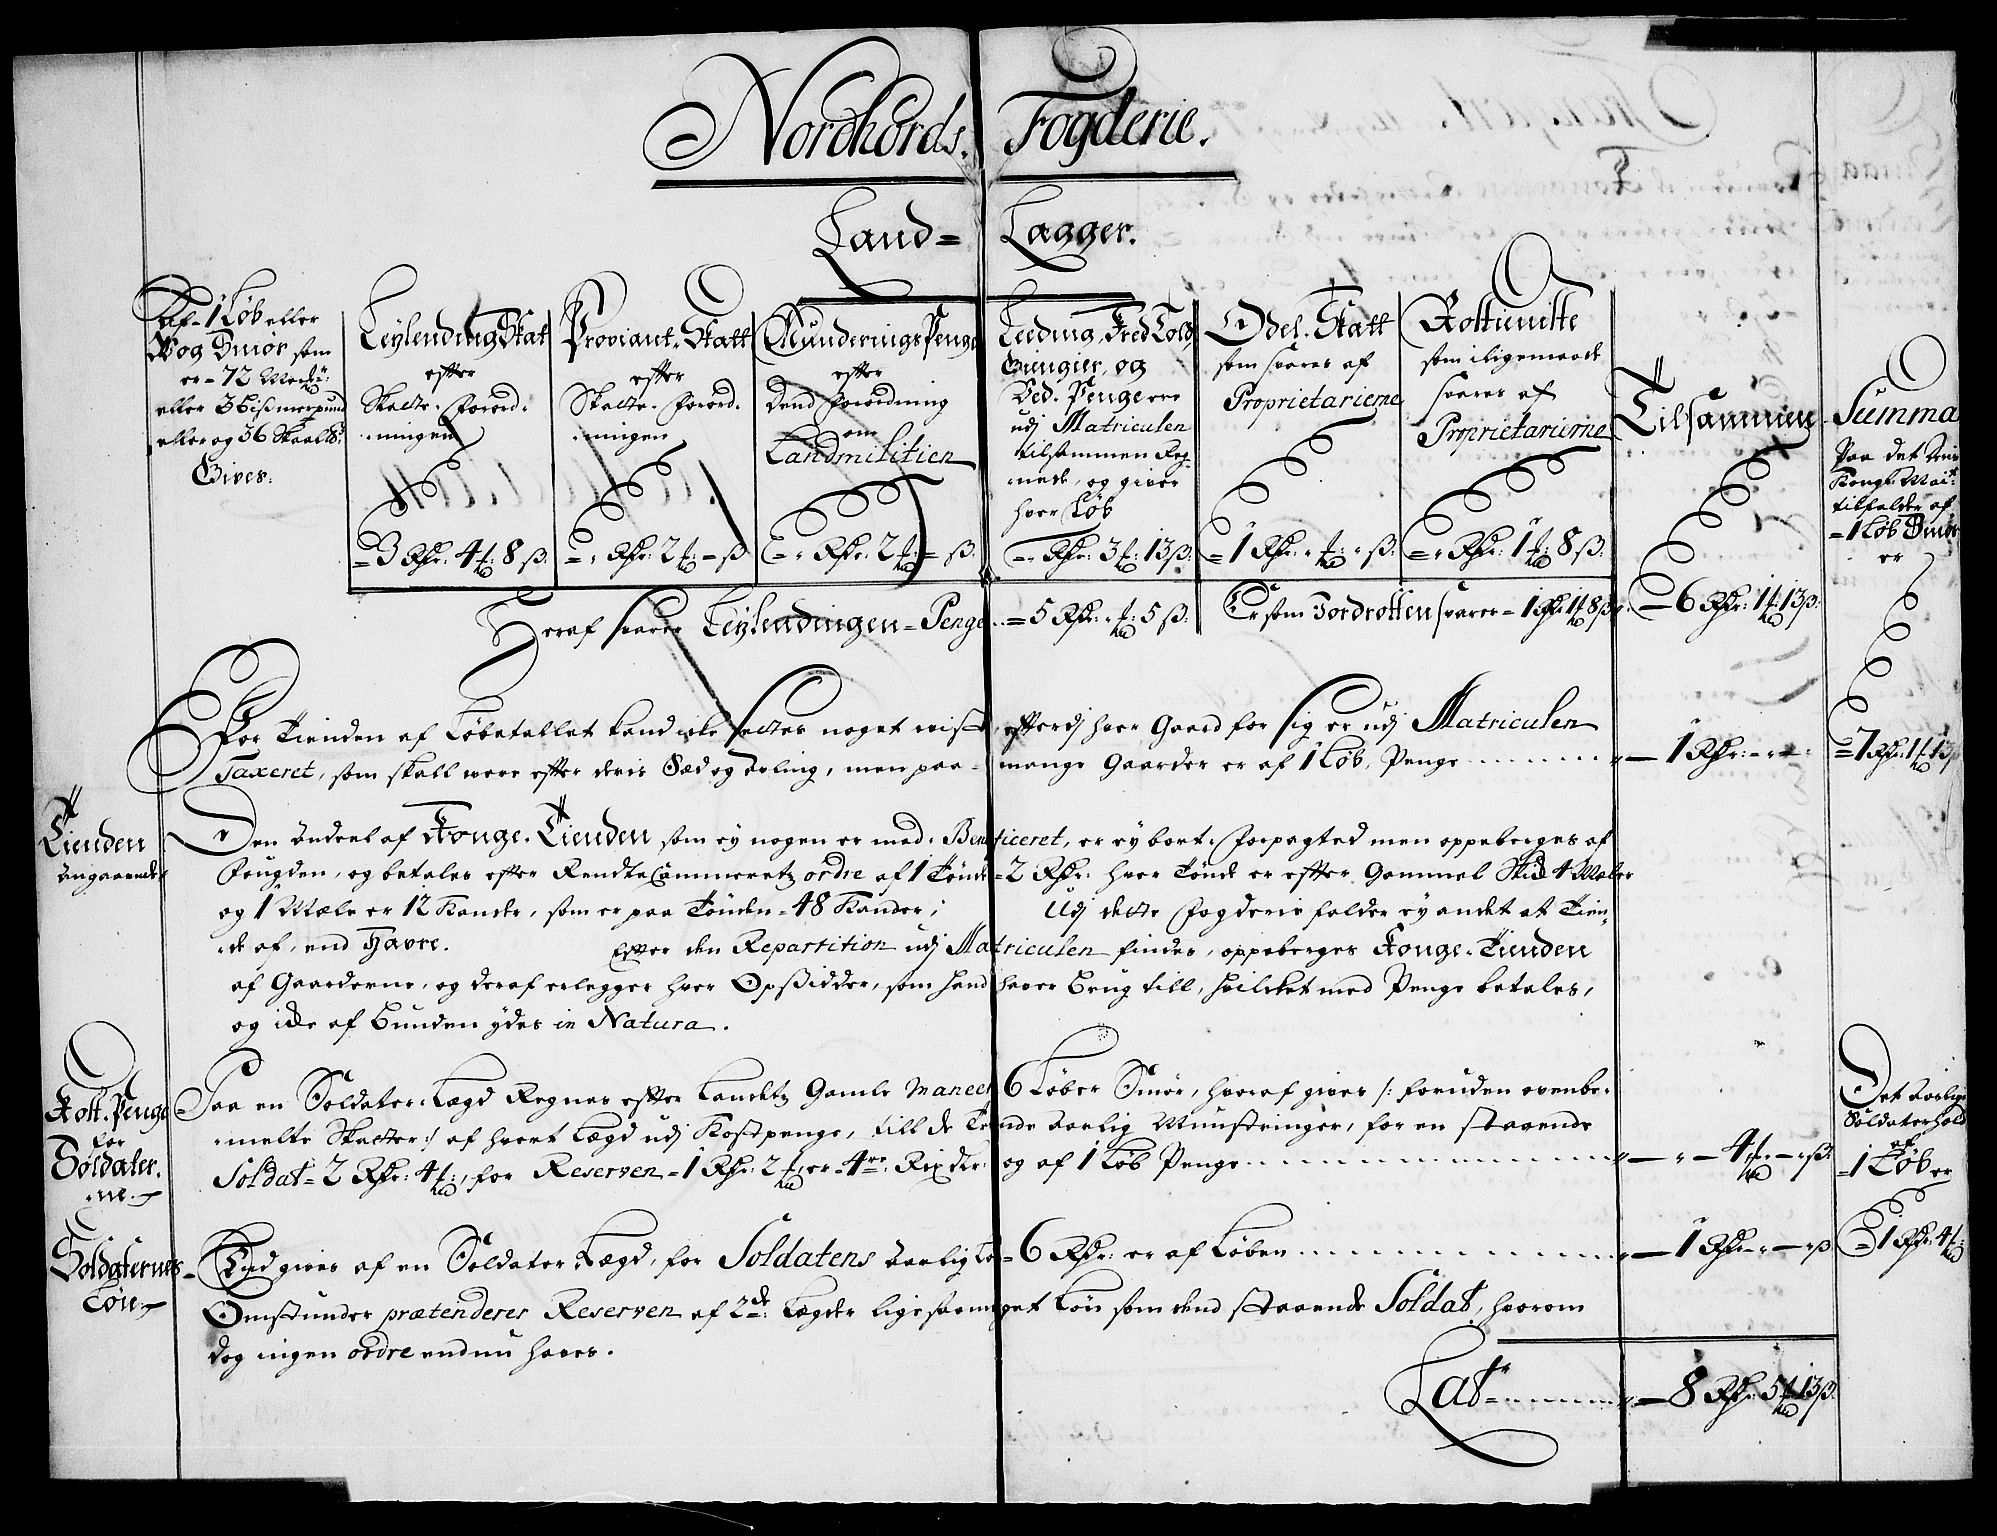 Nordhords. Fogderie.
Land= Lagger.
Af 1 Løb eller
Wog Smør som
er 72 Merker
eller 3 bißmerpund
eller og 36 Skaal℔:
Gives:
Leylending Skat
efter
Skatte-forord-
ningen
= 3 Rdr: 4 ℳ: 8 ß:
Proviant-Skatt
efter
Skatte-forord-
ningen
= " Rdr: 2 ℳ: – ß
Munderings Penge
efter
Dend forordning
om
Landmilitien
= " Rdr: 2 ℳ: – ß:
Leeding, Fred Told
Giengier, og
Ved-Penge ere
udj Matriculen
tilsammen Reg-
nede, og giver
hver Løb
= " Rdr: 3 ℳ: 13 ß:
Odel-Skatt
som svares af
Proprietarierne
= 1 Rdr: " ℳ: " ß:
Rostieniste
som iligemaade
svares af
Proprietarierne
= " Rdr: 1 ℳ: 8 ß:
Tilsammen
Summa
Paa det
Kong: May:
tilfalder af
= 1 Løb Smør
er
Heraf svarer Leylendingen = Penge = 5 Rdr: " ℳ: 5 ß: Er som Jordrotten svarer = 1 Rdr 1 ℳ 8 ß: – 6 Rdr: 1 ℳ: 13 ß:
For Tienden af Løbetallet kand icke settes noget wist, efterdj hver Gaard for sig er udj Matriculen
Taxeret, som skall were efter deris Sæd og Avling, men paa mange Gaarder er af 1 Løb, Penge – 1 Rdr: – " – = 7 Rdr: 1 ℳ 13 ß
Tienden
Angaaende
Den Andeel af Konge-Tienden som ey nogen er med Beneficeret, er ey bort-forpagted men oppeberges af
Fougden, og betales efter Rendte Cammeretz ordre af 1 Tønde = 2 Rdr: hver Tønde er efter Gammel Skick 4 Mæler
og 1 Mæle er 12 Kander, som er paa Tønden = 48 Kander; Udj dette Fogderie falder ey andet at Tien-
de af, end Havre. Efter den Repartition udj Matriculen findes, oppeberges Konge-Tienden
af Gaarderne, og deraf erlegger hver Opsidder, som hand haver Brug till, hvilcket med Penge betales,
og icke af Bunden ydes in Natura.
Kost-Penge
for
Soldater-
ne.
Paa en Soldater-Lægd Regnes efter Landetz Gamle Maneer 6 Løber Smør, hvoraf gives /: foruden ovenbe-
melte Skatter :/ af hvert Lægd udj Kostpenge, till de Trende Aarlig Munstringer, for en staaende
Soldat = 2 Rdr: 4 ℳ:, for Reserven = 1 Rdr: 2 ℳ, er = 4re. Rixdlr: og af 1 Løb Penge – " – 4 ℳ – " ß:
Det Aarlige
Soldaterhold
af
= 1 Løb er
= 1 Rdr: 4 ℳ:
Soldaternes
Løn
End gives af en Soldater Lægd, for Soldatens Aarlig Løn = 6 Rdr: er af Løben – 1 Rdr – " – " ß
Omstunder prætenderes Reserven af 2de: Lægder lige saameget Løn som dend staaende Soldat, hvorom
dog ingen ordre endnu haves.
Lat – 8 Rdr: 5 ℳ: 13 ß: